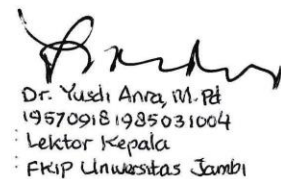 Dr. Yusdi Anra, M.Pd
195709181985031004
: Lektor Kepala
: FKIP Universitas Jambi